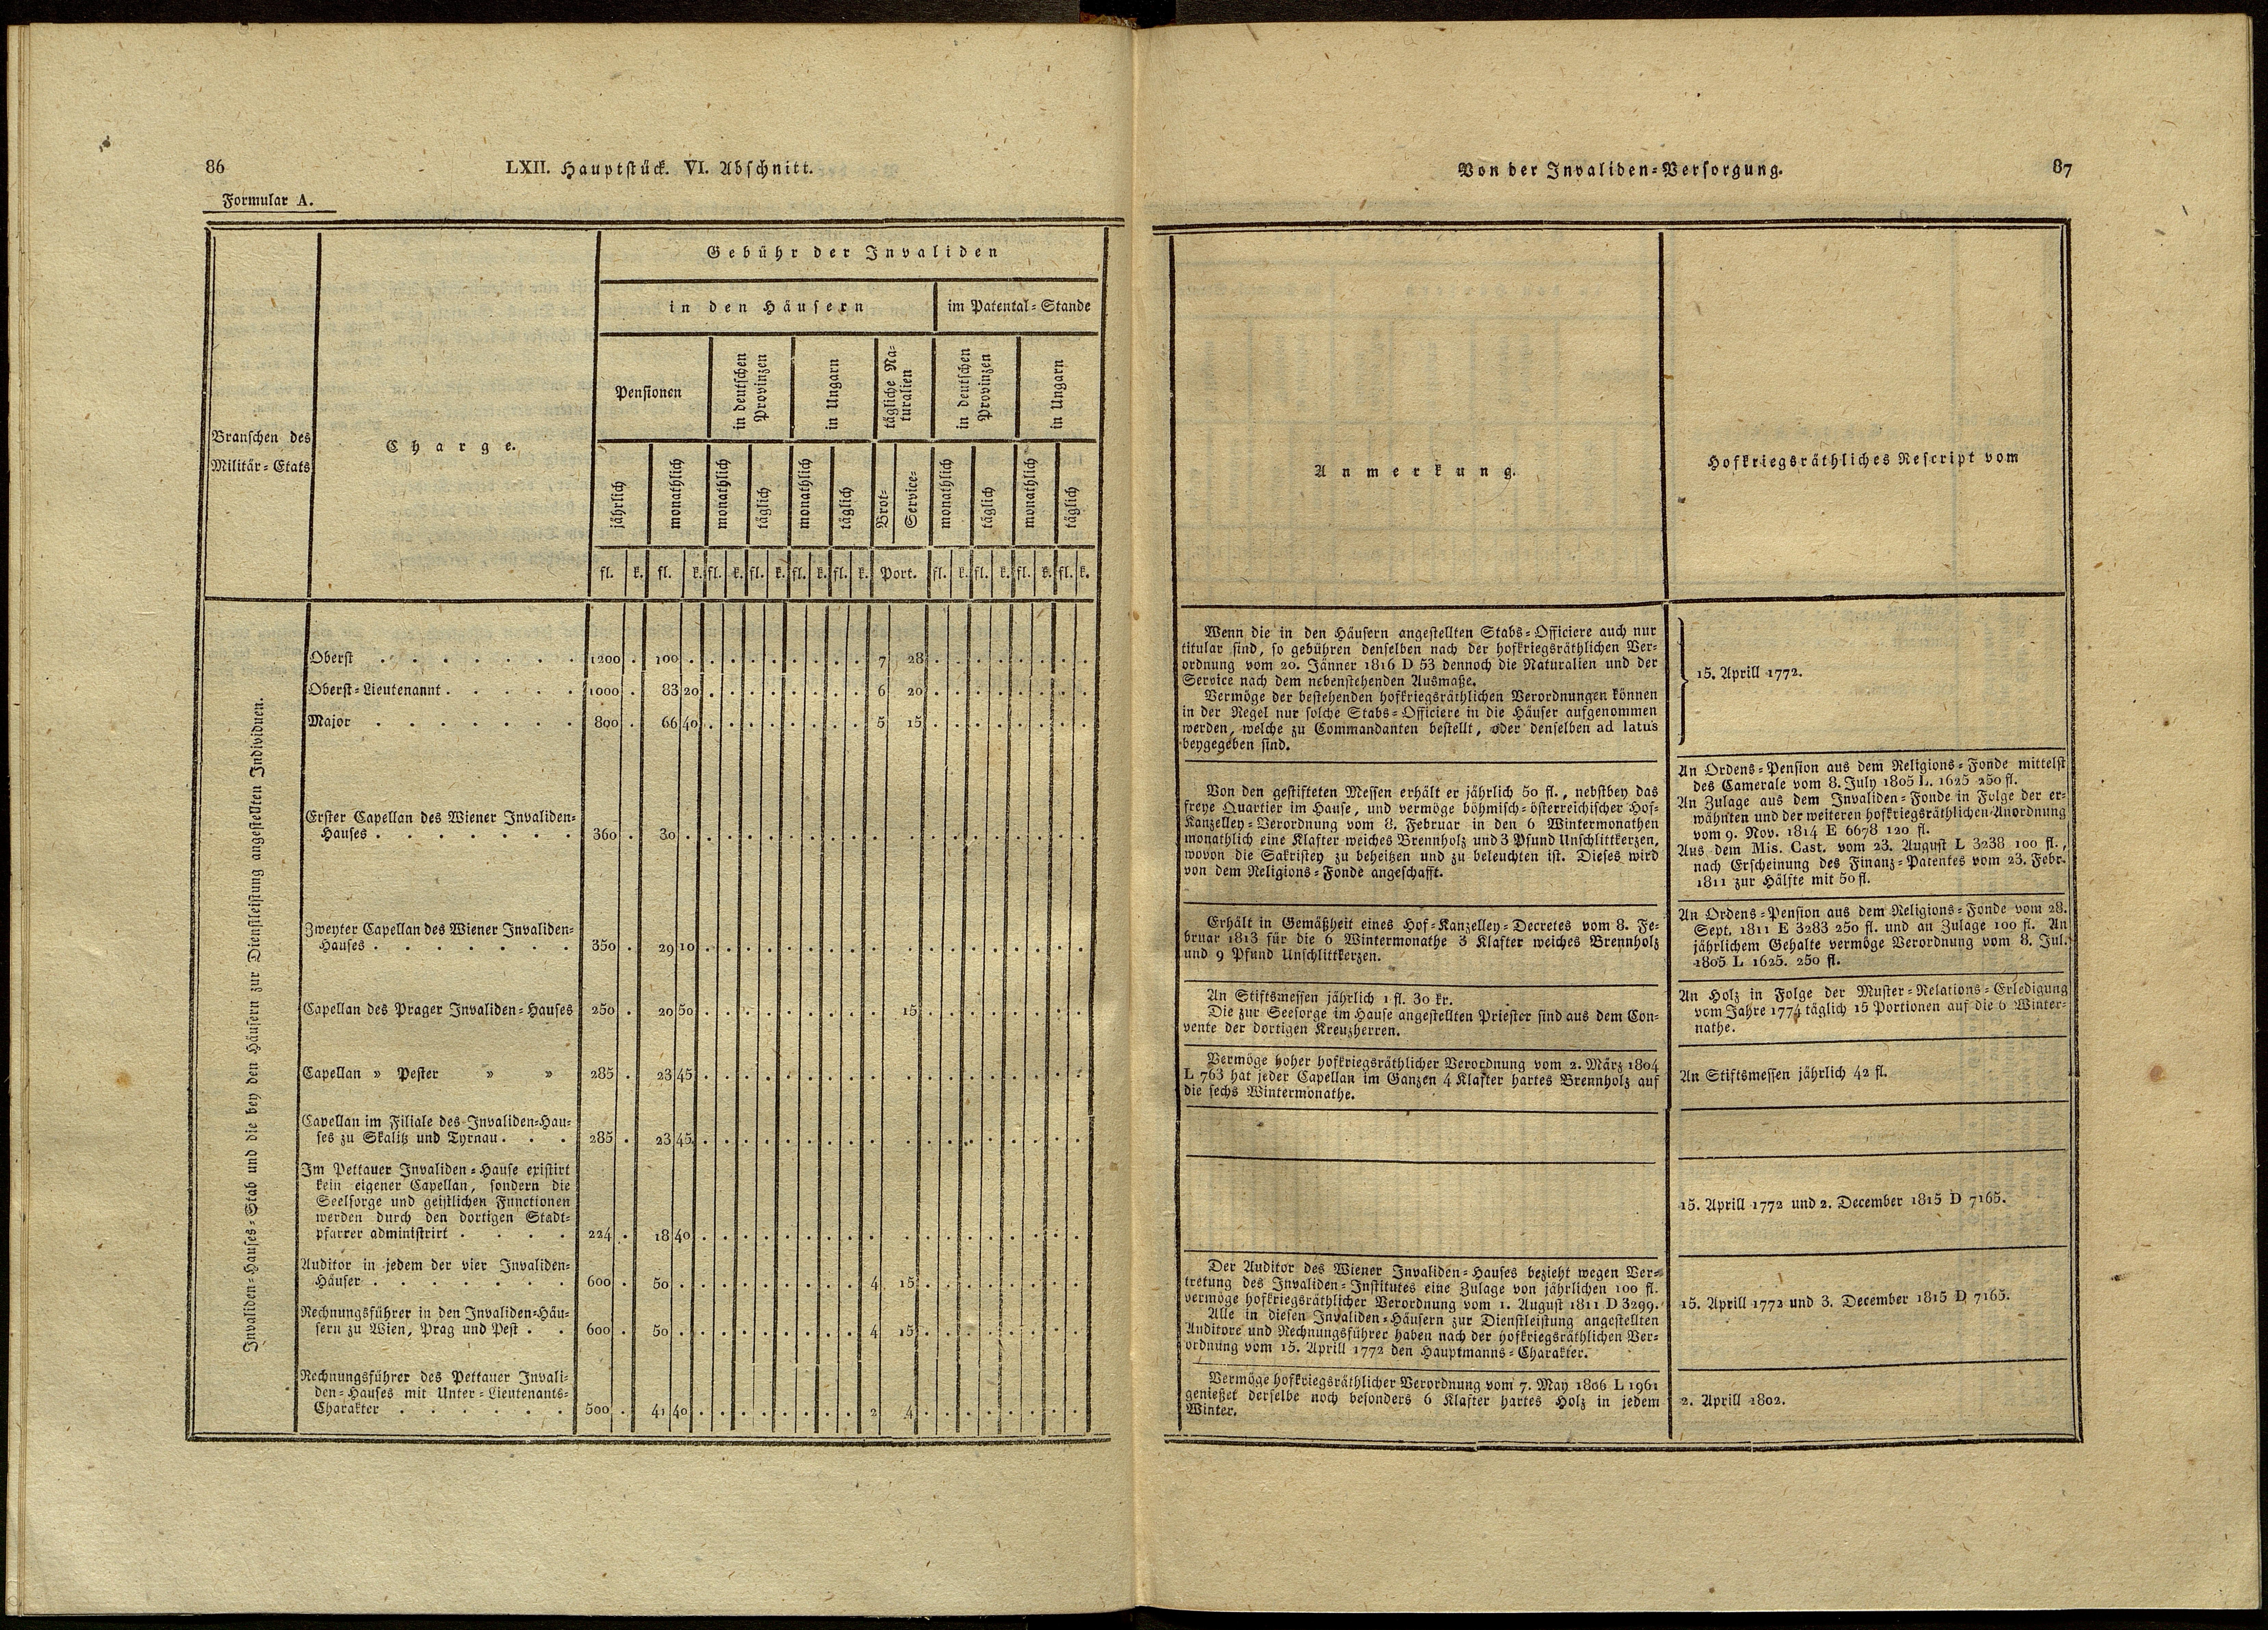 86
LXII. Hauptstück. VI. Abschnitt.
Formular A.
Branschen des
Militär-Etats
Charge.
Gebühr der Invaliden
in den Häusern
im Patental-Stande
Pensionen
in deutschen
Provinzen
in Ungarn
tägliche Na-
turalien
in deutschen
Provinzen
in Ungarn
jährlich
monathlich
monathlich
täglich
monathlich
täglich
Brot-
Service-
monathlich
täglich
monathlich
täglich
fl. k. fl. k. fl. k. fl. k. fl. k. fl. k. Port. fl. k. fl. k. fl. k. fl. k.
Invaliden-Hauses-Stab und die bey den Häusern zur Dienstleistung angestellten Individuen.
Oberst . . . . . . . 1200 . 100 . . . . . . . . . 7 28 . . . . . . . .
Oberst-Lieutenannt . . . . . 1000 . 83 20 . . . . . . . . 6 20 . . . . . . . .
Major . . . . . . . 800 . 66 40 . . . . . . . . 5 15 . . . . . . . .
Erster Capellan des Wiener Invaliden-
Hauses . . . . . . . 360 . 30 . . . . . . . . . . . . . . . . . . .
Zweyter Capellan des Wiener Invaliden-
Hauses . . . . . . . 350 . 29 10 . . . . . . . . . . . . . . . . . .
Capellan des Prager Invaliden-Hauses 250 . 20 50 . . . . . . . . . 15 . . . . . . . .
Capellan » Pester » » 285 . 23 45 . . . . . . . . . . . . . . . . . .
Capellan im Filiale des Invaliden-Hau-
ses zu Skalitz und Tyrnau . . . 285 . 23 45 . . . . . . . . . . . . . . . . . .
Im Pettauer Invaliden-Hause existirt
kein eigener Capellan, sondern die
Seelsorge und geistlichen Functionen
werden durch den dortigen Stadt-
pfarrer administrirt . . . . 224 . 18 40 . . . . . . . . . . . . . . . . . .
Auditor in jedem der vier Invaliden-
Häuser . . . . . . . 600 . 50 . . . . . . . . . 4 15 . . . . . . . .
Rechnungsführer in den Invaliden-Häu-
sern zu Wien, Prag und Pest . . 600 . 50 . . . . . . . . . 4 15 . . . . . . . .
Rechnungsführer des Pettauer Invali-
den-Hauses mit Unter-Lieutenants-
Charakter . . . . . . 500 . 41 40 . . . . . . . . 2 4 . . . . . . . .
Von der Invaliden-Versorgung.
87
Anmerkung.
Hofkriegsräthliches Rescript vom
Wenn die in den Häusern angestellten Stabs-Officiere auch nur
titular sind, so gebühren denselben nach der hofkriegsräthlichen Ver-
ordnung vom 20. Jänner 1816 D 53 dennoch die Naturalien und der
Service nach dem nebenstehenden Ausmaße.
Vermöge der bestehenden hofkriegsräthlichen Verordnungen können
in der Regel nur solche Stabs-Officiere in die Häuser aufgenommen
werden, welche zu Commandanten bestellt, oder denselben ad latus
beygegeben sind.
15. Aprill 1772.
Von den gestifteten Messen erhält er jährlich 50 fl., nebstbey das
freye Quartier im Hause, und vermöge böhmisch-österreichischer Hof-
Kanzelley-Verordnung vom 8. Februar in den 6 Wintermonathen
monathlich eine Klafter weiches Brennholz und 3 Pfund Unschlittkerzen,
wovon die Sakristey zu beheitzen und zu beleuchten ist. Dieses wird
von dem Religions-Fonde angeschafft.
An Ordens-Pension aus dem Religions-Fonde mittelst
des Camerale vom 8. July 1805 L. 1625 250 fl.
An Zulage aus dem Invaliden-Fonde in Folge der er-
wähnten und der weiteren hofkriegsräthlichen Anordnung
vom 9. Nov. 1814 E 6678 120 fl.
Aus dem Mis. Cast. vom 23. August L 3238 100 fl.,
nach Erscheinung des Finanz-Patentes vom 23. Febr.
1811 zur Hälfte mit 50 fl.
Erhält in Gemäßheit eines Hof-Kanzelley-Decretes vom 8. Fe-
bruar 1813 für die 6 Wintermonathe 3 Klafter weiches Brennholz
und 9 Pfund Unschlittkerzen.
An Ordens-Pension aus dem Religions-Fonde vom 28.
Sept. 1811 E 3283 250 fl. und an Zulage 100 fl. An
jährlichem Gehalte vermöge Verordnung vom 8. Jul.
1805 L 1625. 250 fl.
An Stiftsmessen jährlich 1 fl. 30 kr.
Die zur Seesorge im Hause angestellten Priester sind aus dem Con-
vente der dortigen Kreuzherren.
An Holz in Folge der Muster-Relations-Erledigung
vom Jahre 1774 täglich 15 Portionen auf die 6 Winter-
nathe.
Vermöge hoher hofkriegsräthlicher Verordnung vom 2. März 1804
L 763 hat jeder Capellan im Ganzen 4 Klafter hartes Brennholz auf
die sechs Wintermonathe.
An Stiftsmessen jährlich 42 fl.
15. Aprill 1772 und 2. December 1815 D 7165.
Der Auditor des Wiener Invaliden-Hauses bezieht wegen Ver-
tretung des Invaliden-Institutes eine Zulage von jährlichen 100 fl.
vermöge hofkriegsräthlicher Verordnung vom 1. August 1811 D 3299.
Alle in diesen Invaliden-Häusern zur Dienstleistung angestellten
Auditore und Rechnungsführer haben nach der hofkriegsräthlichen Ver-
ordnung vom 15. Aprill 1772 den Hauptmanns-Charakter.
15. Aprill 1772 und 3. December 1815 D 7165.
Vermöge hofkriegsräthlicher Verordnung vom 7. May 1806 L 1961
genießet derselbe noch besonders 6 Klafter hartes Holz in jedem
Winter.
2. Aprill 1802.